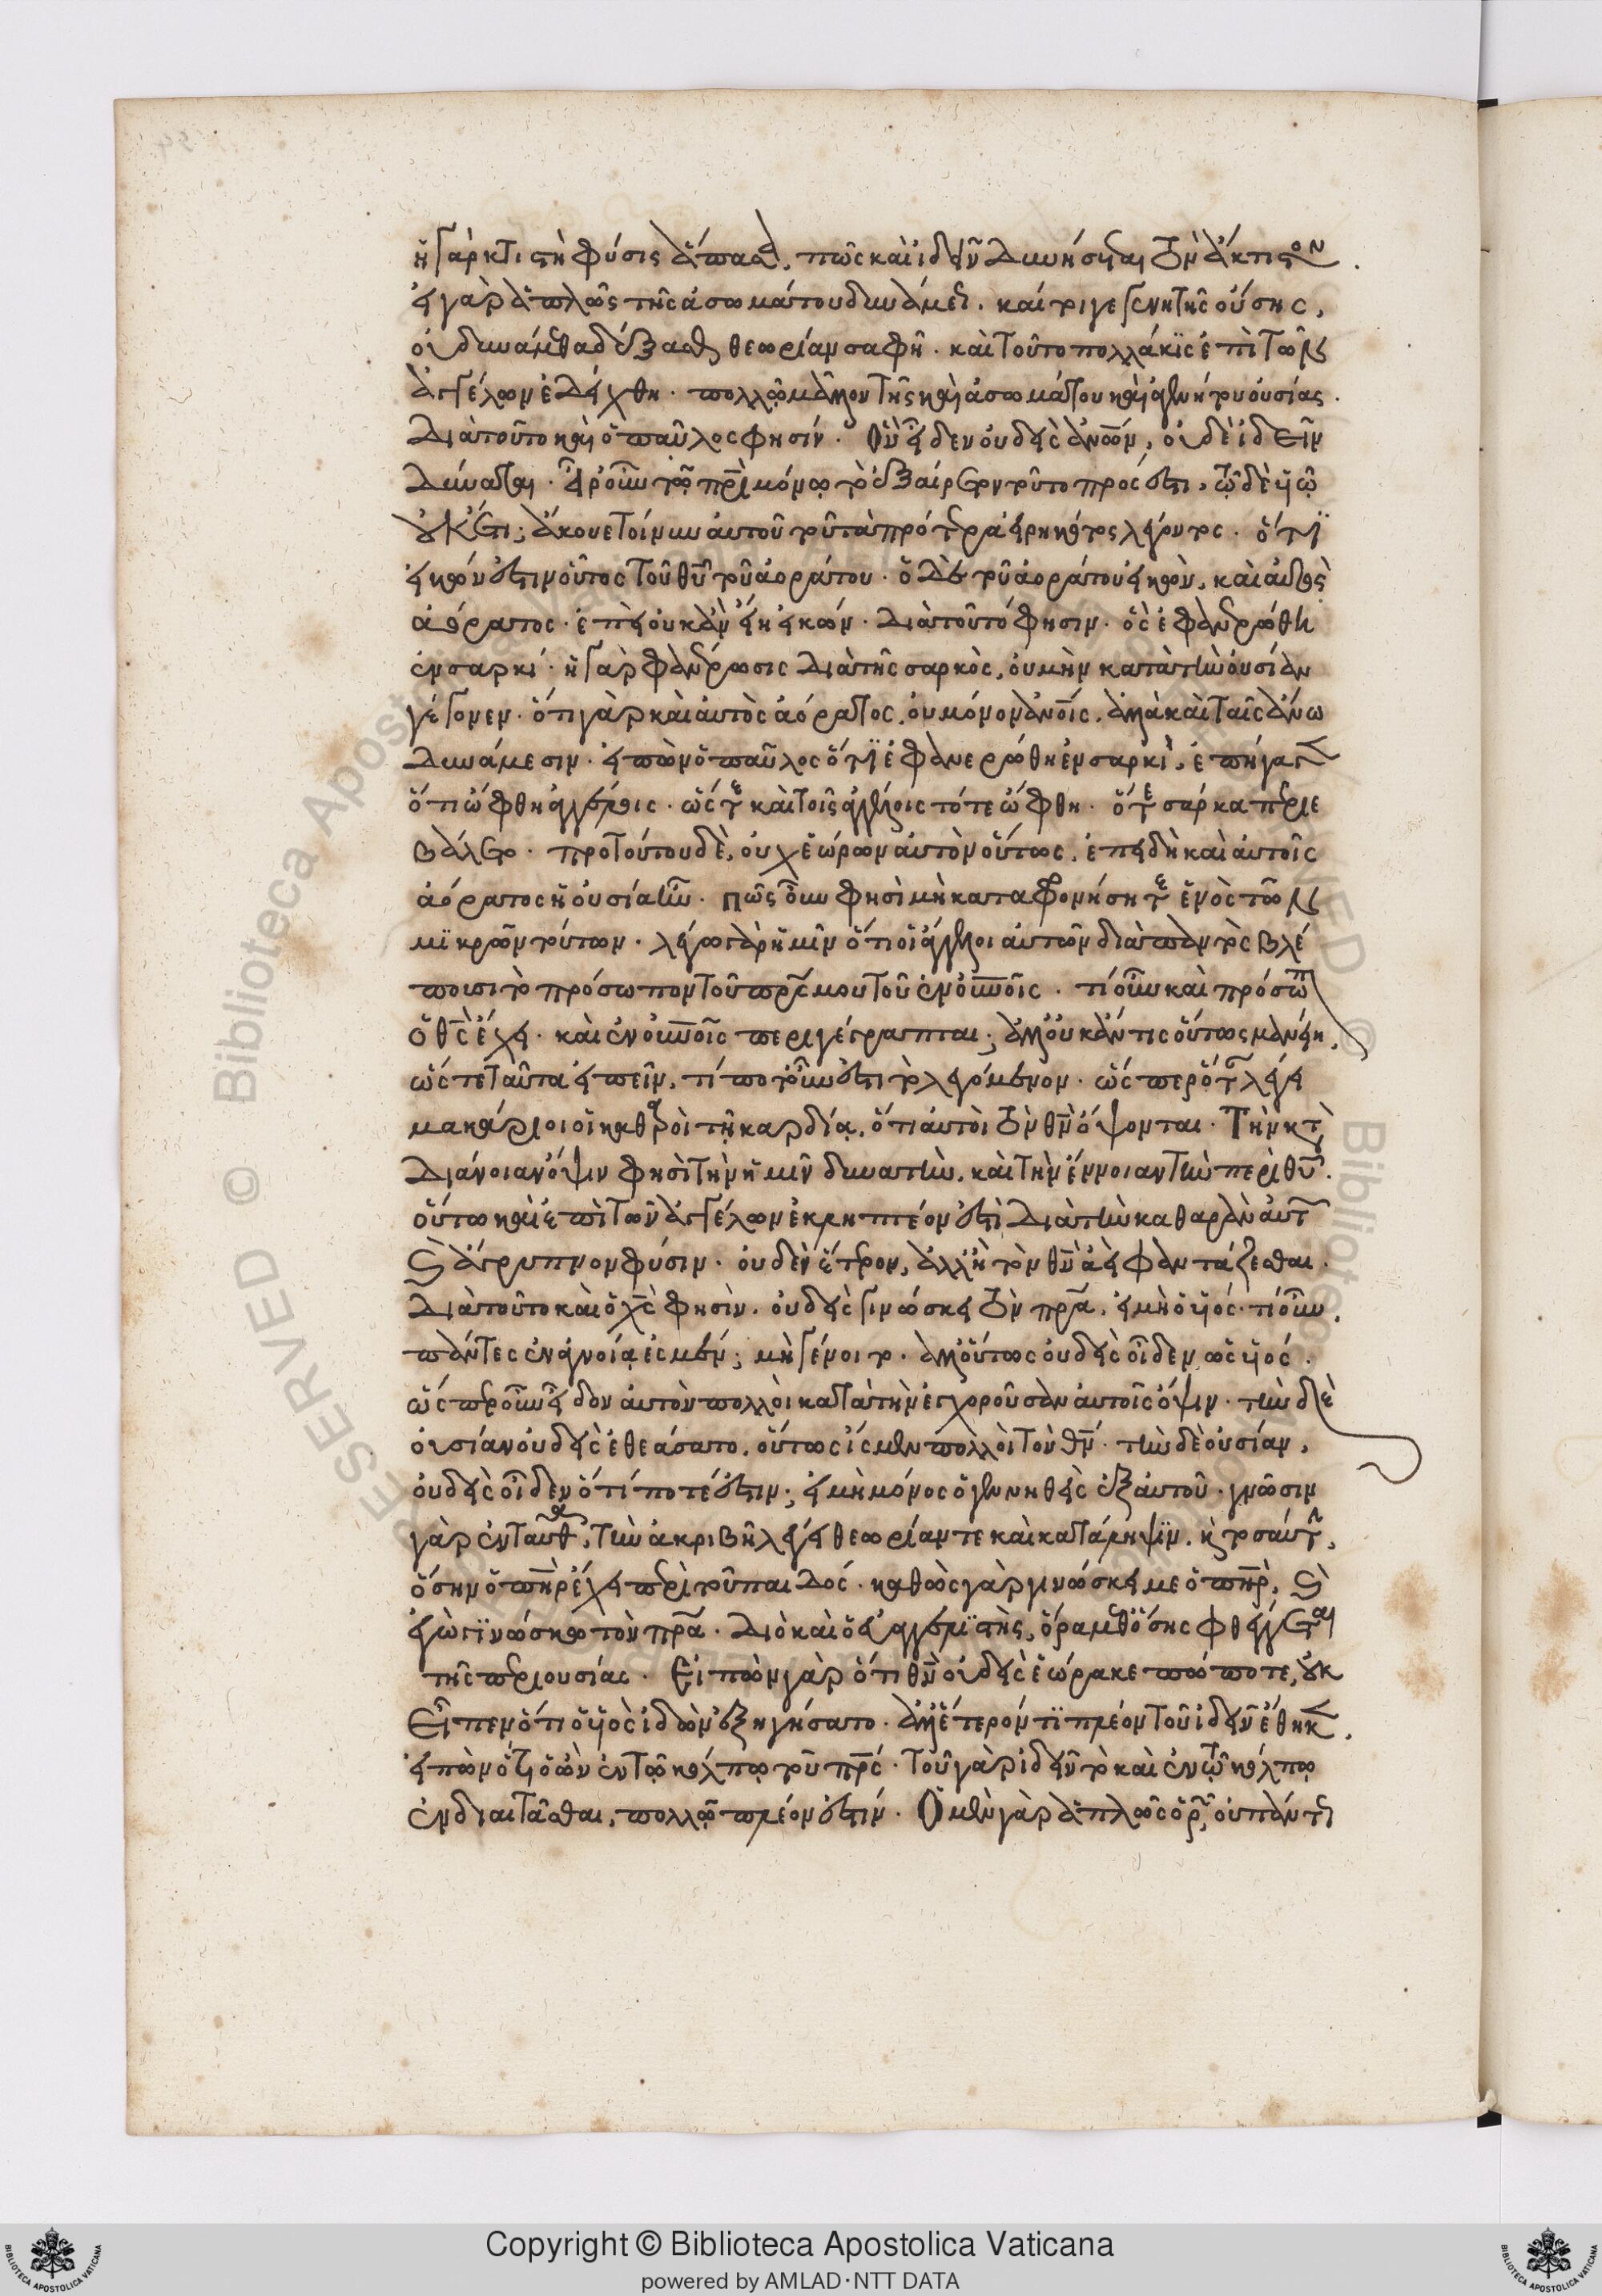 ἡ γὰρ κτιστὴ φύσις ἅπασα, πῶς καὶ ἰδεῖν δυνήσεται τὸν ἄκτιστον.
εἰ γὰρ ἁπλῶς τῆς ἀσωμάτου δυνάμεως. καίτοιγε γεννητῆς οὔσης,
οὐ δυνάμεθα δέξασθαι θεωρίαν σαφῆ. καὶ τοῦτο πολλάκις ἐπὶ τῶν
ἀγγέλων ἐδείχθη. πολλῷ μᾶλλον τῆς καὶ ἀσωμάτου καὶ ἀγεννήτου οὐσίας.
Διὰ τοῦτο καὶ ὁ παῦλος φησίν. Ὃν εἶδεν οὐδεὶς ἀνων, οὐδὲ ἰδεῖν
δύναται. Ἆρ οὖν τῷ πρὶ μόνῳ τὸ ἐξαίρετον τοῦτο πρόσεστι, τῷ δὲ υἱῷ
οὐκέτι; ἄκουε τοίνυν αὐτοῦ τοῦτα πρότερα εἰρηκότος λέγοντος. ὅτι
εἰκόν ἐστιν οὗτος τοῦ θυ τοῦ ἀοράτου. ὁ δὲ τοῦ ἀοράτου εἰκὼν, καὶ αὐτὸς
ἀόρατος. ἐπεὶ οὐκ ἂν εἴη εἰκών. Διὰ τοῦτό φησιν. ὃς ἐφανερώθη
ἐν σαρκί. ἡ γὰρ φανέρωσις διὰ τῆς σαρκὸς, οὐ μὴν κατὰ τὴν οὐσίαν
γέγονεν. ὅτι γὰρ καὶ αὐτὸς ἀόρατος, οὐ μόνον ἀνοις, ἀλλὰ καὶ ταῖς ἄνω
δυνάμεσιν. εἰπὼν ὁ παῦλος ὅτι ἐφανερώθη ἐν σαρκὶ, ἐπήγαγεν
ὅτι ὤφθη ἀγγέλοις. ὥστε καὶ τοῖς ἀγγέλοις τότε ὤφθη. ὅτε σάρκα περιε
βάλετο. πρὸ τούτου δὲ, οὐχ ἑώρων αὐτὸν οὕτως, ἐπειδὴ καὶ αὐτοῖς
ἀόρατος ἡ οὐσία ἦν. πῶς οὖν φησὶ μὴ καταφρονήσητε ἑνὸς τῶν
μικρῶν τούτων. λέγω γὰρ ἡμῖν ὅτι οἱ ἄγγελοι αὐτῶν διὰ παντὸς βλέ
πουσι τὸ πρόσωπον τοῦ πρς μου τοῦ ἐν οὐνοῖς. τί οὖν καὶ πρόσωπ
ὁ θς ἔχει. καὶ ἐν οὐνοῖς περιγέγραπται; ἀλλ οὐκ ἄν τις οὕτως μανείη,
ὥστε ταῦτα εἰπεῖν, τί ποτ οὖν ἐστι τὸ λεγόμενον. ὥσπερ ὅτε λέγει
μακάριοι οἱ καθαροὶ τῇ καρδίᾳ, ὅτι αὐτοὶ τὸν θν ὄψονται. Τὴν κτὰ
διάνοιαν ὄψιν φησὶ τὴν ἡμῖν δυνατὴν, καὶ τὴν ἔννοιαν τὴν περὶ θυ.
οὕτω καὶ ἐπὶ τῶν ἀγγέλων ἐκληπτέον ἐστὶ διὰ τὴν καθαρὰν αὐτῶν
καὶ ἄγρυπνον φύσιν. οὐδὲν ἕτερον, ἀλλ ἢ τὸν θν ἀεὶ φαντάζεσθαι.
Διὰ τοῦτο καὶ ὁ χς φησὶν. οὐδεὶς γινώσκει τὸν πρα, εἰ μὴ ὁ υἱός. τί οὖν,
πάντες ἐν ἀγνοίᾳ ἐσμέν; μὴ γένοιτο. ἀλλ οὕτως οὐδεὶς οἶδεν ὡς υἱός.
ὥσπερ οὖν εἶδον αὐτὸν πολλοὶ κατὰ τὴν ἐγχωροῦσαν αὐτοῖς ὄψιν. τὴν δὲ
οὐσίαν οὐδεὶς ἐθεάσατο, οὕτως ἴσμεν πολλοὶ τὸν θν. τὴν δὲ οὐσίαν,
οὐδεὶς οἶδεν ὅ τί ποτέ ἐστιν; εἰ μὴ μόνος ὁ γεννηθεὶς ἐξ αὐτοῦ. γνῶσιν
γὰρ ἐνταῦθα, τὴν ἀκριβῆ λέγει θεωρίαν τε καὶ κατάληψιν. κ τοσαύτην,
ὅσην ὁ πηρ ἔχει περὶ τοῦ παιδός. καθὼς γὰρ γινώσκει με ὁ πηρ, καὶ
ἐγὼ γινώσκω τὸν πρα. Διὸ καὶ ὁ εὐαγγελιστὴς, ὅρα μεθ ὅσης φθέγγεται
τῆς περιουσίας. Εἰπὼν γὰρ ὅτι θν οὐδεὶς ἑώρακε πώποτε, οὐκ
εἶπεν ὅτι ὁ υἱὸς ἰδὼν ἐξηγήσατο. ἀλλ ἕτερόν τι πλέον τοῦ ἰδεῖν ἔθηκεν,
εἰπὼν ὅτι ὁ ὢν ἐν τῷ κόλπῳ τοῦ πρς. τοῦ γὰρ ἰδεῖν τὸ καὶ ἐν τῷ κόλπῳ
ἐνδιαιτᾶσθαι, πολλῷ πλέον ἐστίν. Ὁ μὲν γὰρ ἁπλῶς ὁρῶν, οὐ πάντη